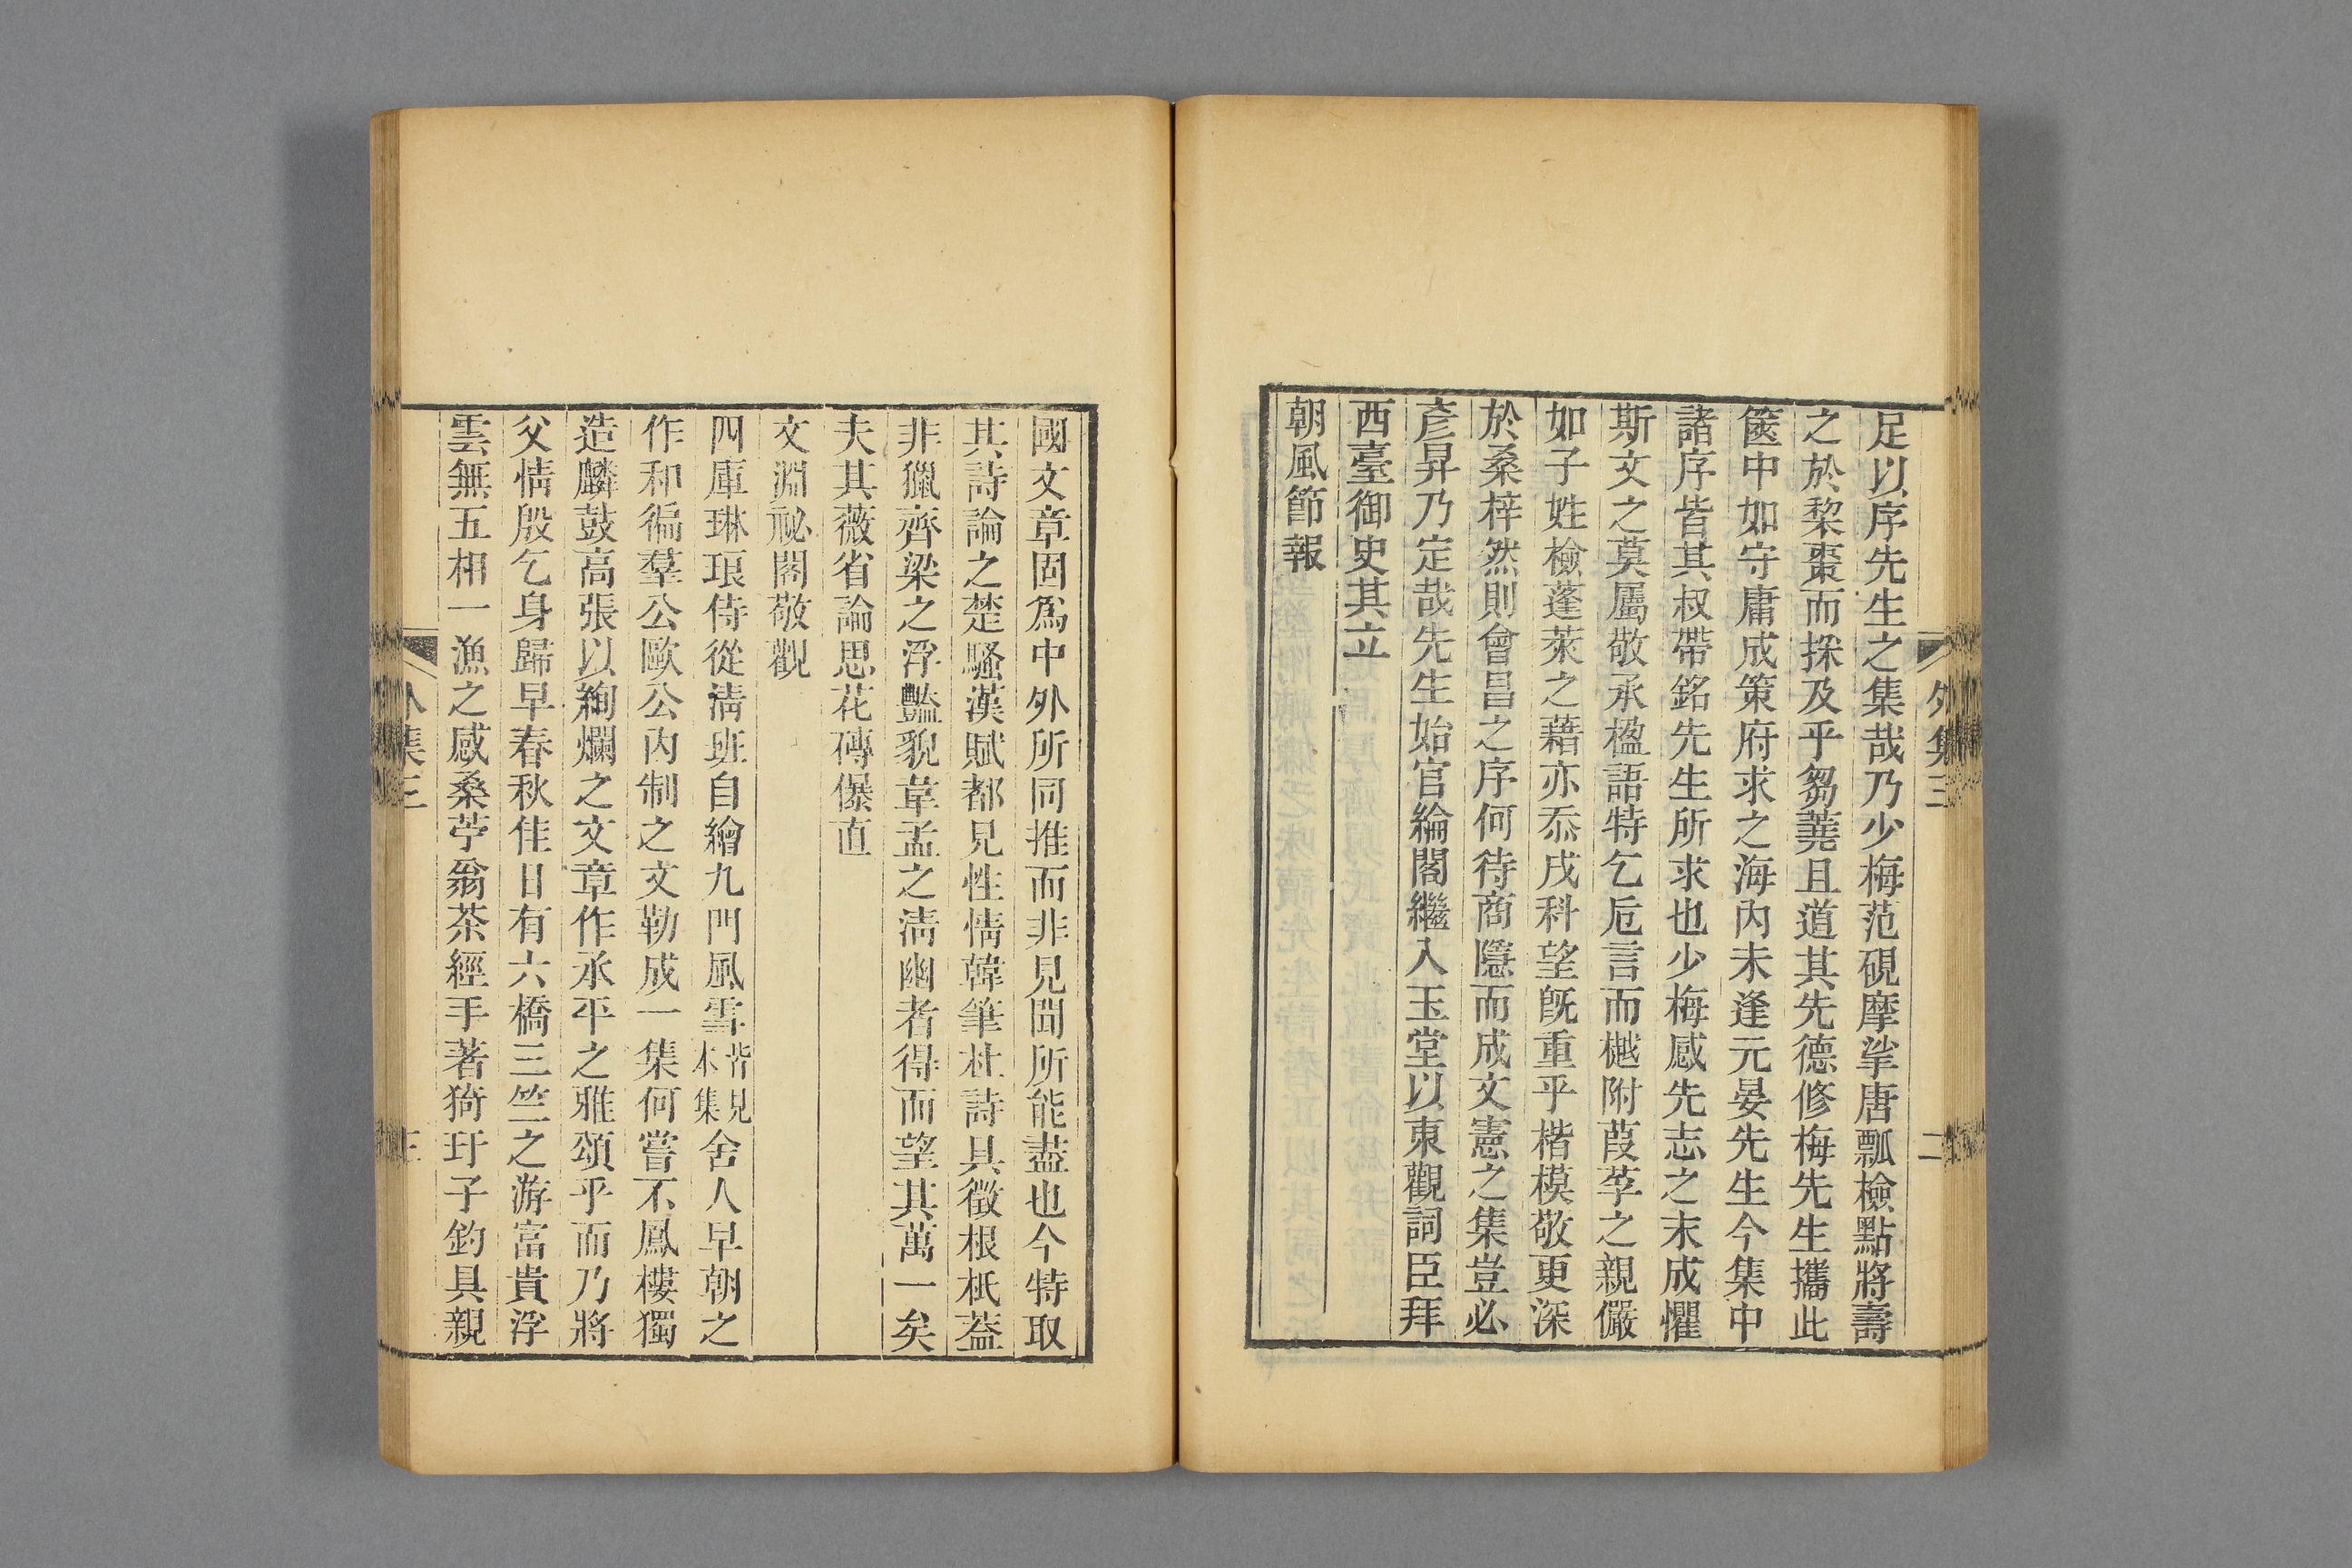 足以序先生之集哉乃少梅范硯摩挲唐瓢檢點將壽
之於棃棗而採及乎芻蕘且道其先德修梅先生攜此
篋中如守庸成策府求之海內未逢元晏先生今集中
諸序皆其叔帶銘先生所求也少梅感先志之未成懼
斯文之莫屬敬承楹語特乞卮言而樾附葭莩之親儼
如子姓檢蓬萊之藉亦忝戌科望旣重乎楷模敬更深
於桑梓然則會昌之序何待商隱而成文憲之集豈必
彥昇乃定哉先生始官綸閣繼入玉堂以東觀詞臣拜
西臺御史其立
朝風節報
外集三
二
國文章固爲中外所同推而非見聞所能盡也今特取
其詩論之楚騷漢賦都見性情韓筆杜詩具徵根柢葢
非獵齊梁之浮豔貌韋孟之淸幽者得而望其萬一矣
夫其薇省論思花磚儤直
文淵祕閣敬觀
四庫琳琅侍從淸班自繪九門風雪皆見本集舍人早朝之
作和徧羣公歐公內制之文勒成一集何嘗不鳳樓獨
造麟鼓高張以絢爛之文章作承平之雅頌乎而乃將
父情殷乞身歸早春秋佳日有六橋三竺之游富貴浮
雲無五相一漁之感桑苧翁茶經手著猗玗子釣具親
外集三
三